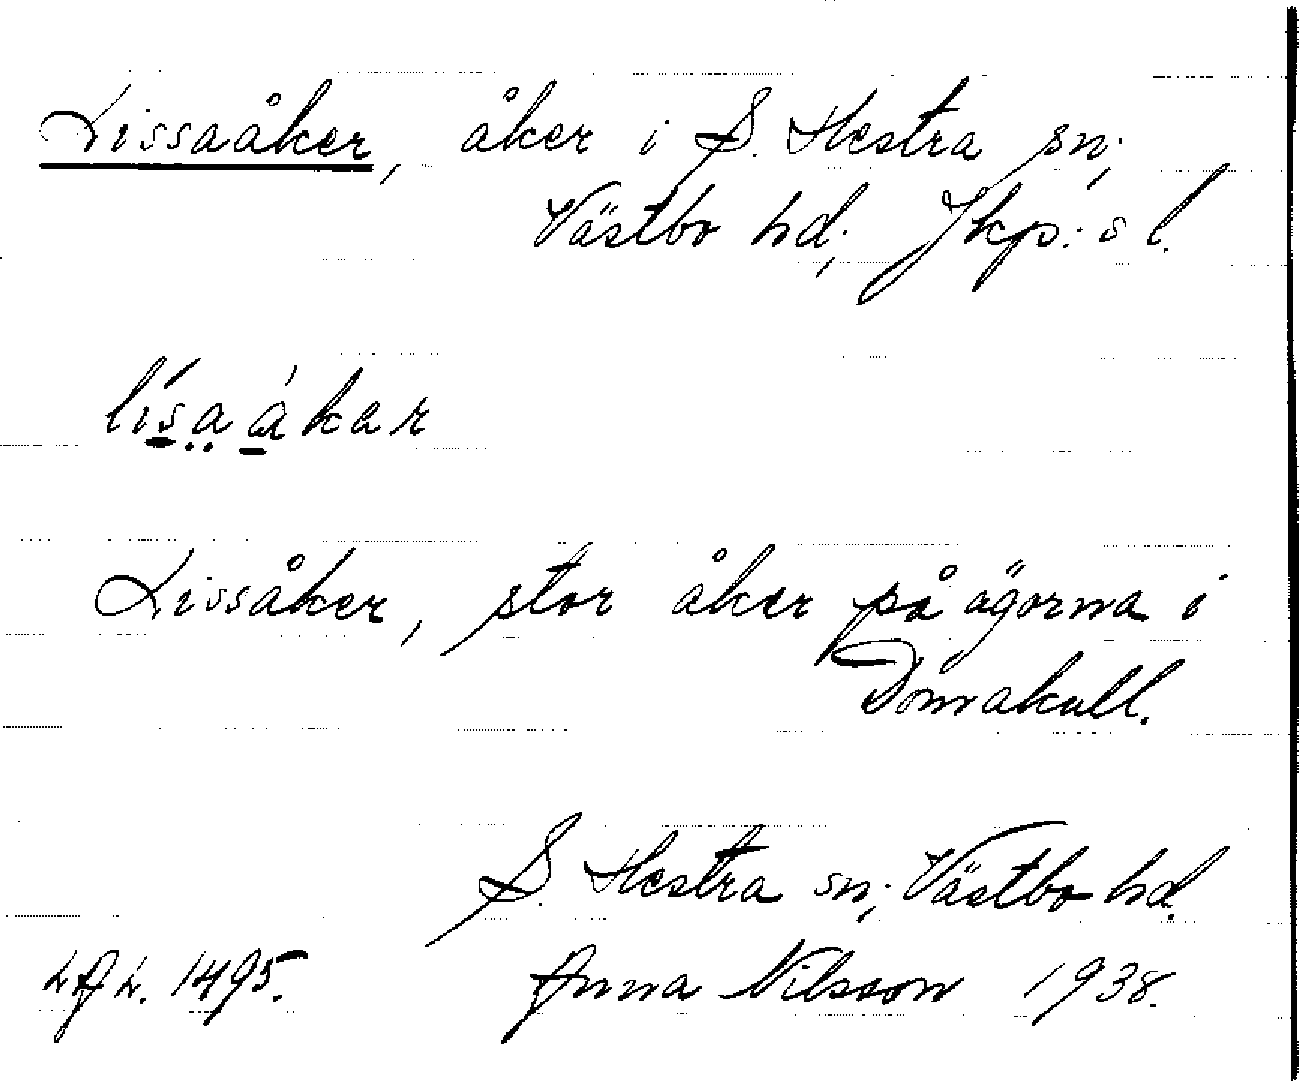 Lissaåker, åker i S. Hestra sn;
Västbo hd; Jkp:s l.
lísa ákar
Lissåker, stor åker på ägorna i
Domvakull.
S. Hestra sn; Västbo hd.
1495.
Anna Nilsson 1938.